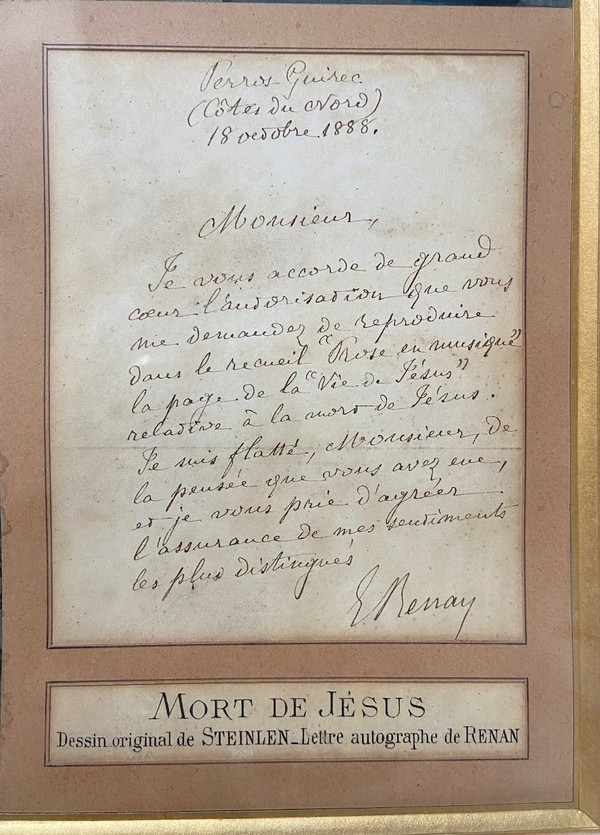 Perros-Guirec
(Côtes du Nord)
18 octobre 1888.
Monsieur,
Je vous accorde de grand
cœur l'autorisation que vous
me demandez de reproduire
dans le recueil "Prose en musique"
la page de la "Vie de Jésus"
relative à la mort de Jésus.
Je suis flatté, Monsieur, de
la pensée que vous avez eue,
et je vous prie d'agréer
l'assurance de mes sentiments
les plus distingués
E. Renan
MORT DE JÉSUS
Dessin original de STEINLEN_Lettre autographe de RENAN